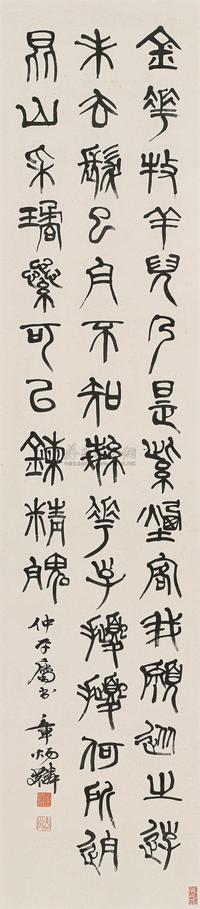 金華牧羊兒乃是紫煙客我願從之遊
未去髮已白不知緐華子擾擾何所迫
昆山采瓊蘂可以鍊精魄 仲 屬書 章炳麟